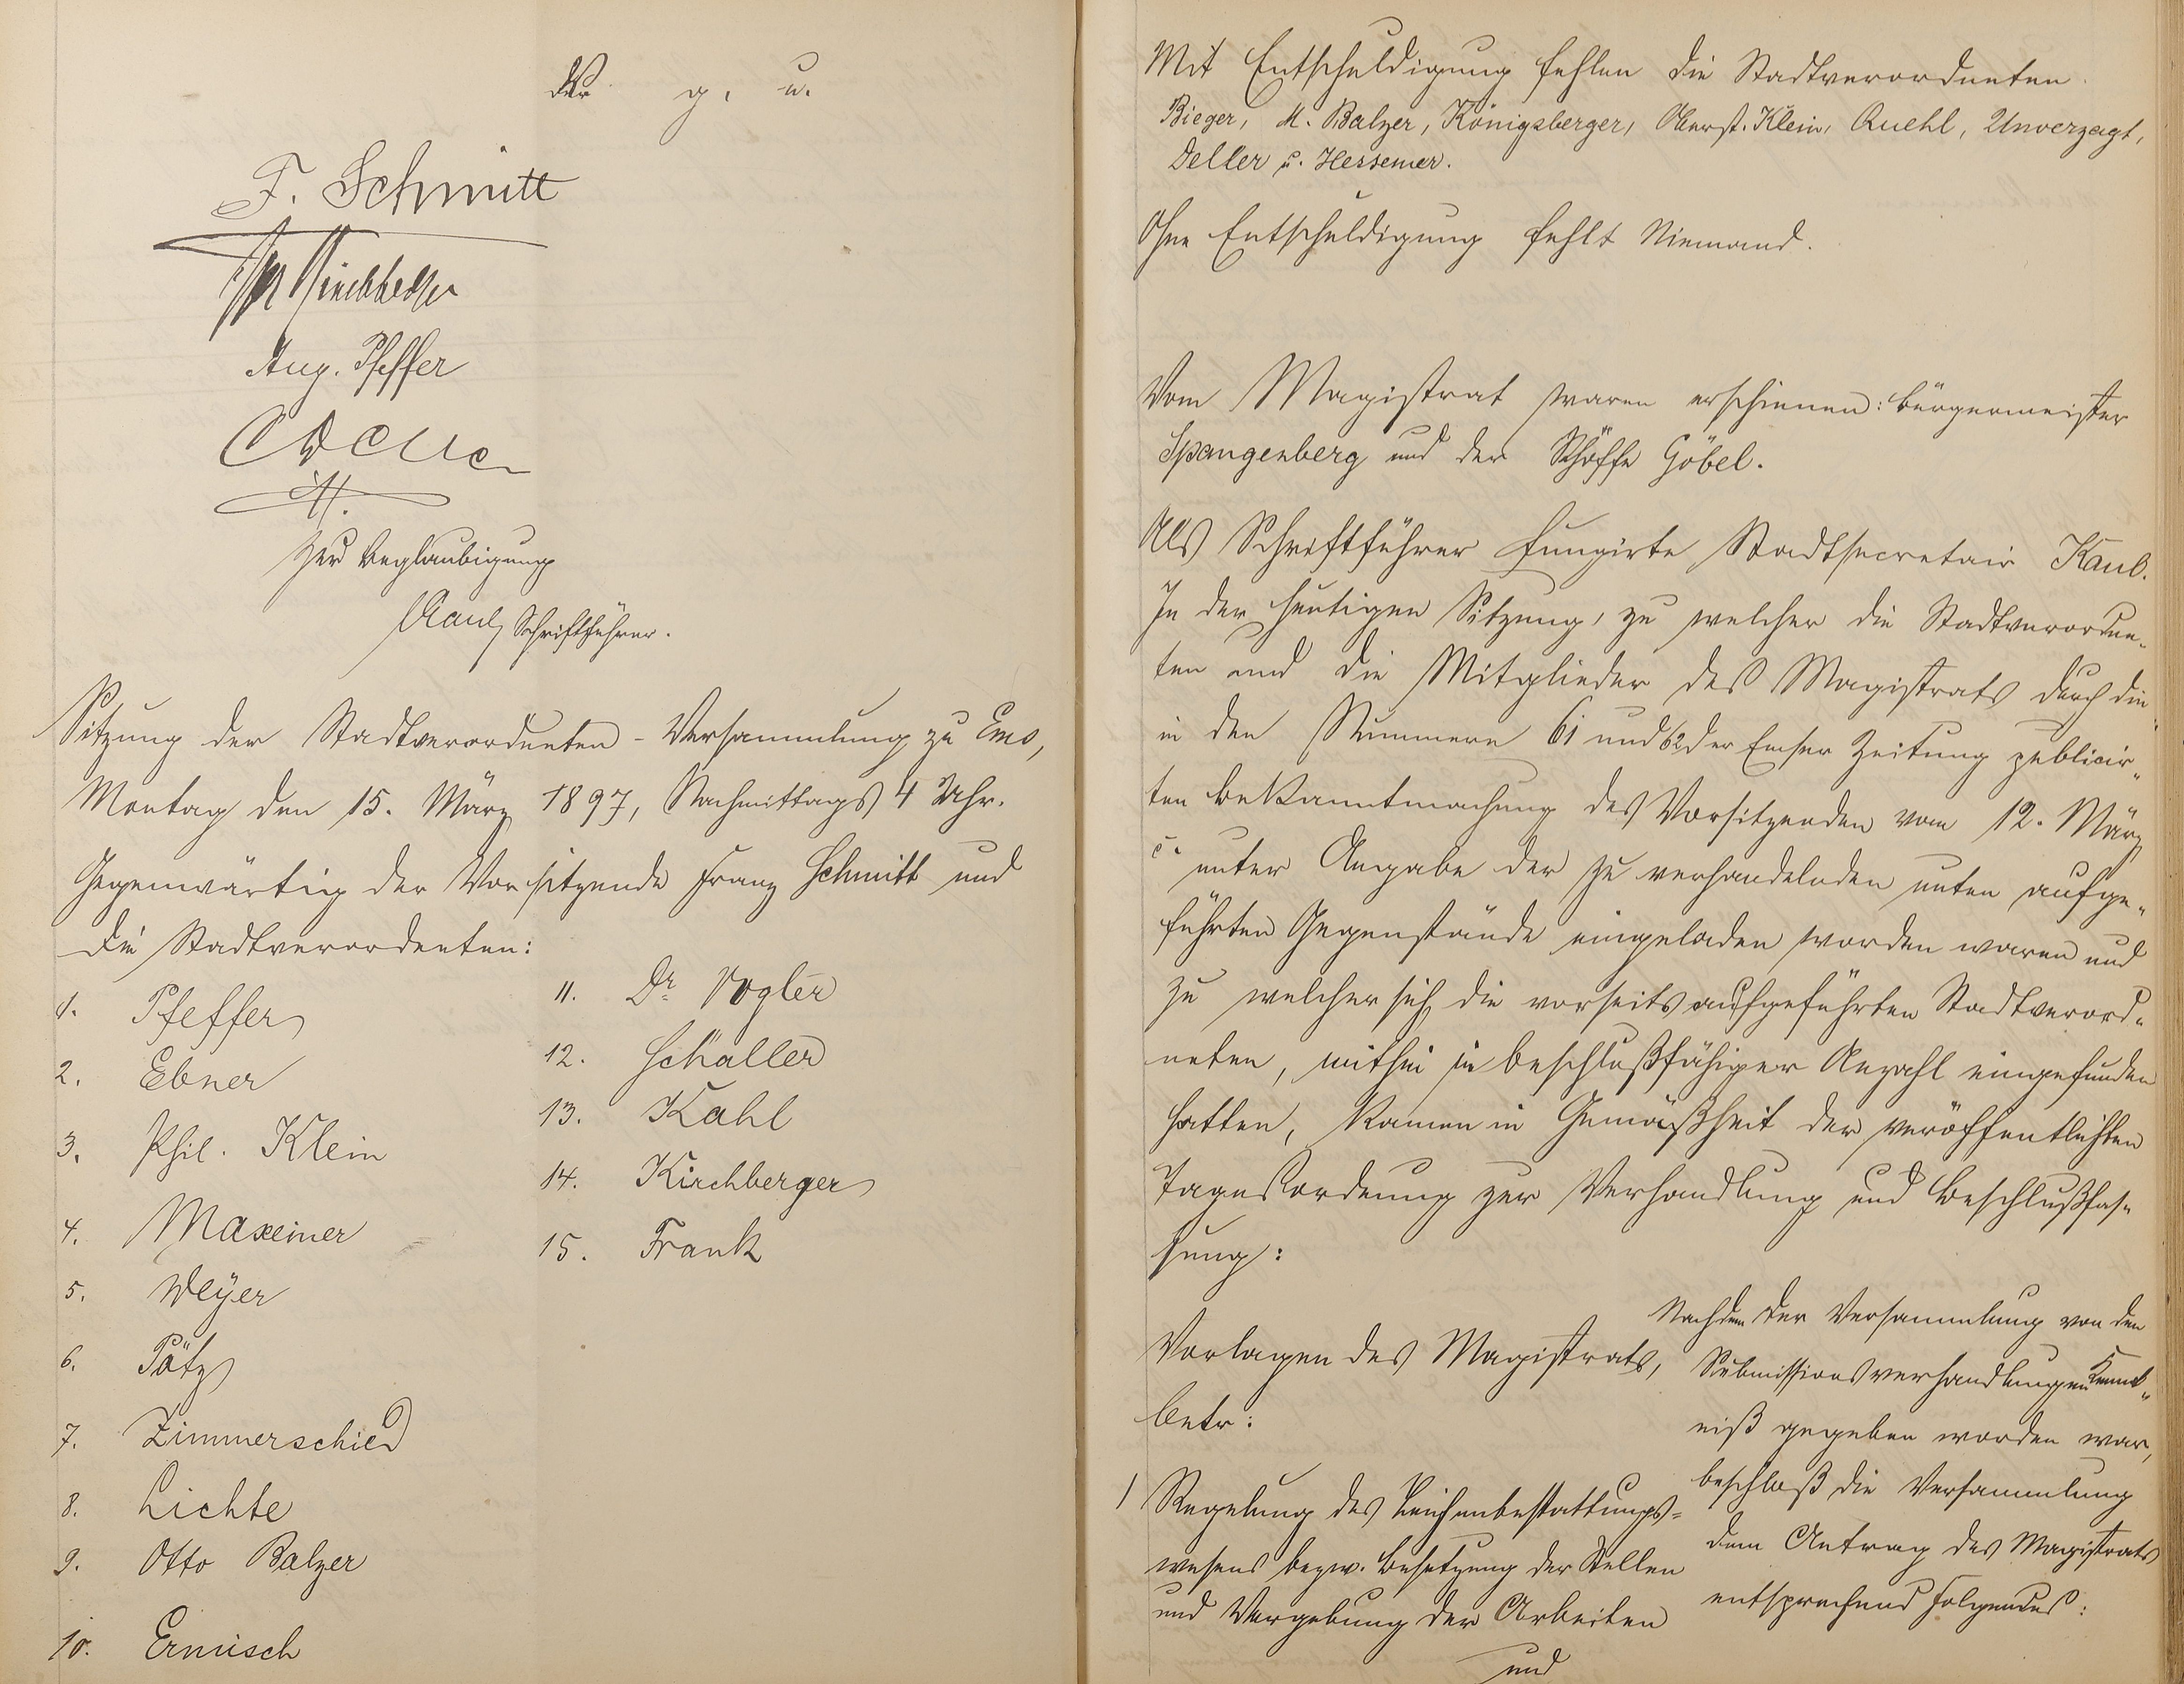 g. u.
F. Schmitt
Aug. Pfeffer
Zur Beglaubigung
Kaul, Schriftführer.
Sitzung der Stadtverordneten-Versammlung zu Ems,
Montag den 15. März 1897, Nachmittags 4 Uhr.
Gegenwärtig der Vorsitzende Franz Schmitt und
die Stadtverordneten:
1. Pfeffer
2. Ebner
3. Phil. Klein
4. Maxeiner
5. Weÿer
6. Pötz
7. Zimmerschied
8. Lichte
9. Otto Balzer
10. Ermisch
11. Dr. Vogler
12. Schaller
13. Kahl
14. Kirchberger
15. Frank
Mit Entschuldigung fehlen die Stadtverordneten
Bieger, M. Balzer, Königsberger, Oberst. Klein, Ruehl, Unverzagt,
Deller u. Hessemer.
Ohne Entschuldigung fehlt Niemand.
Vom Magistrat waren erschienen: Bürgermeister
Spangenberg und der Schöffe Göbel.
Als Schriftführer fungirte Stadtsecretair Kaul.
In der heutigen Sitzung, zu welcher die Stadtverordne-
ten und die Mitglieder des Magistrats durch die
in den Nummern 61 und 62 der Emser Zeitung publicir-
ten Bekanntmachung des Vorsitzenden vom 12. März
c. unter Angabe der zu verhandelnden unten aufge-
führten Gegenstände eingeladen worden waren und
zu welcher sich die vorseits aufgeführten Stadtverord-
neten, mithin in beschlußfähiger Anzahl eingefunden
hatten, kamen in Gemäßheit der veröffentlichten
Tagesordnung zur Verhandlung und Beschlußfas-
sung:
Vorlagen des Magistrats,
betr:
1) Regelung des Leichenbestattungs-
wesens bezw. Besetzung der Stellen
und Vergebung der Arbeiten
und
Nachdem der Versammlung von den
Submissionsverhandlungen Kennt-
niß gegeben worden war,
beschloß die Versammlung
dem Antrag des Magistrats
entsprechend Folgendes: